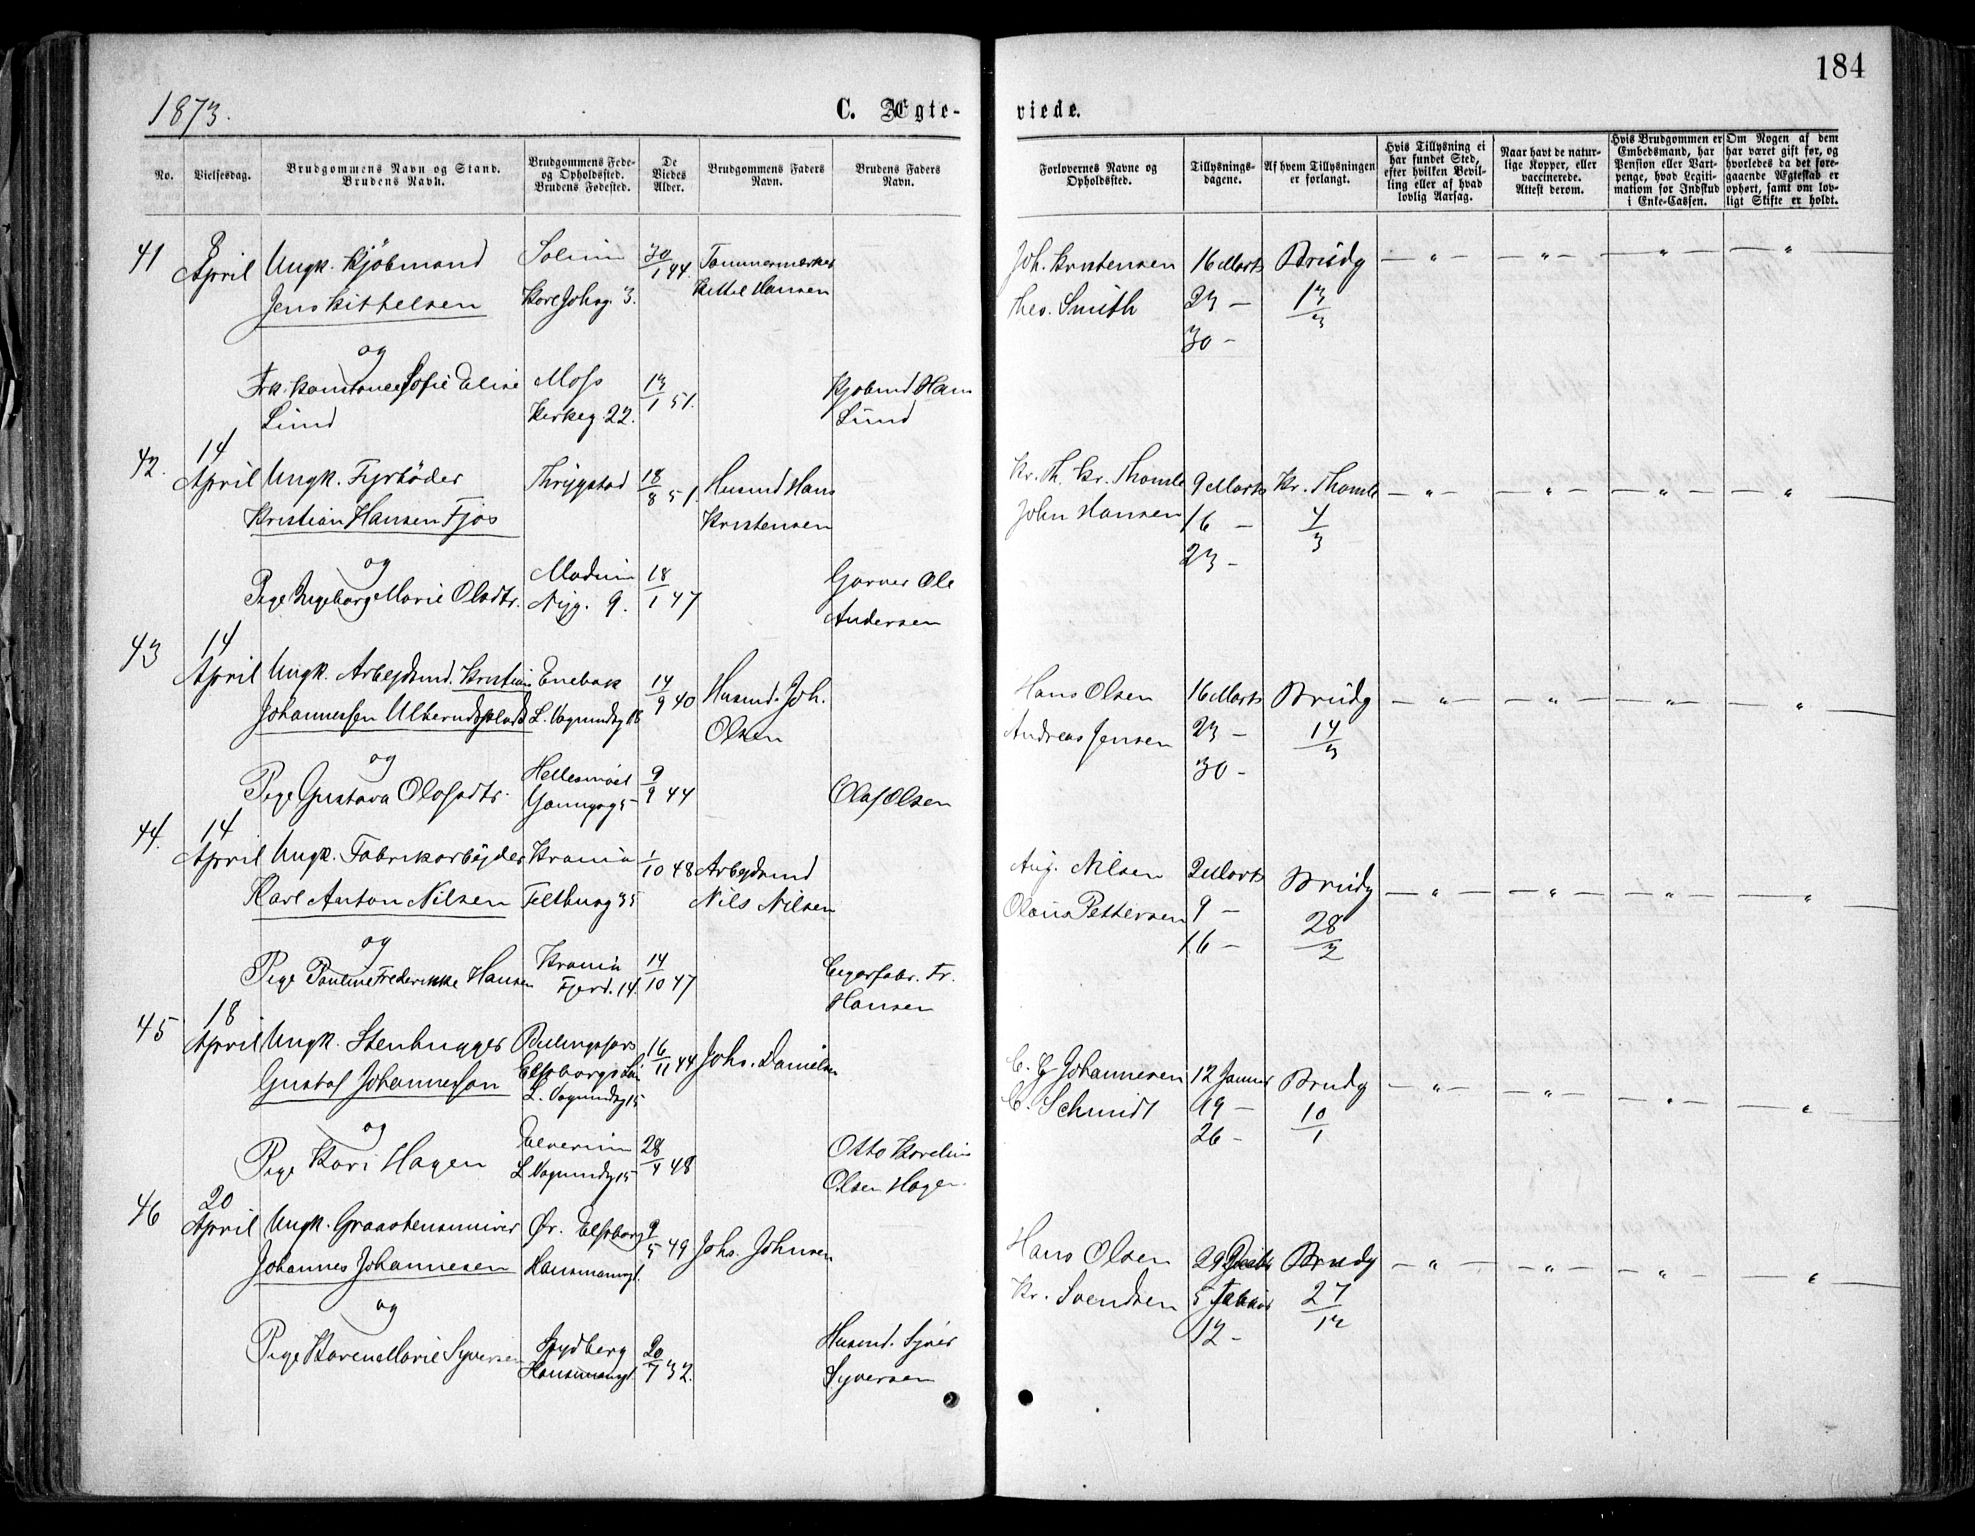 184
1873.
C. Ægte-
viede.
No.
Vielsesdag.
Brudgommens Navn og Stand.
Brudens Navn.
Brudgommens Føde-
og Opholdssted.
Brudens Fødested.
De
Viedes
Alder.
Brudgommens Faders
Navn.
Brudens Faders
Navn.
Forlovernes Navne og
Opholdssted.
Tillysnings-
dagene.
Af hvem Tillysningen
er forlangt.
Hvis Tillysning ei
har fundet Sted,
efter hvilken Bevil-
ling eller af hvad
lovlig Aarsag.
Naar havt de natur-
lige Kopper, eller
vaccinerede.
Attest derom.
Hvis Brudgommen er
Embedsmand, har
Pension eller Vart-
penge, hvad Legiti-
mation for Indskud
i Enke-Cassen.
Om Nogen af dem
har været gift før, og
hvorledes da det fore-
gaaende Ægteskab er
ophørt, samt om lov-
ligt Skifte er holdt.
41 8 April Ungk. Kjöbmand Solum 30/1 44 Tømmermerker
Jens Kittelsen Karl Johsg. 3. Kittil Hansen
og
Frk. Konstance Sofie Elise Moss 13/1 51. Kjøbmd Hans
Lund Kirkeg. 22. Lund
Joh. Kristensen 16 Marts Brudg — " — — " — — " — — " —
Thes. Smith 23 — 13/3
30 —
42. 14 April Ungk. Fyrbøder Thrygstad 18/8 51 Husmd Hans
Kristian Hansen Fjøs Kristensen
og
Pige Ingeborg Marie Olsdtr. Modum 18/1 47 Garver Ole
Nyg. 9. Andersen
Kr. Th. Kr. Thomle 9 Marts Kr. Thomle — " — — " — — " — — " —
John Hansen 16 — 4/3
23 —
43 14 April Ungk. Arbejdsmd. Kristian Enebak 14/9 40 Husmd. Joh.
Johannessen L. Vognmdsg 18 Olsen
og
Pige Gustava Olofsdtr. 9/9 44 Olaf Olsen
Hans Olsen 16 Marts Brudg — " — — " — — " — — " —
Andreas Jensen 23 — 14/3
30 —
44. 14 April Ungk. Fabrikarbejder Krania 1/10 48 Arbejdsmd
Karl Anton Nilsen 35 Nils Nilsen
og
Pige Pauline Frederikke Hansen Krania 14/10 47 Cigarfabr. Fr.
Fjerd. 14. Hansen
Aug. Nilsen 2 Marts Brudg — " — — " — — " — — " —
Olaus Pettersen 9 — 28/2
16 —
45 18 April Ungk. Stenhugger 16/11 44 Johs. Danielsen
Gustaf Johannesson Elfsborgs Län
L. Vognmdsg 15
og
Pige Kari Hagen Elverum 28/4 48 Otto Karelius
L. Vognmdsg 15 Olsen Hagen
C. G Johannesen 12 Januar Brudg — " — — " — — " — — " —
C. Schmidt 19 — 10/1
26 —
46 20 April Ungk. Graastensmurer Ør. Elfsborg 9/5 49 Johs. Johnsen
Johannes Johannesen Hausmannsgt.
og
Pige Karen Marie Syversen Spydberg 20/7 32. Husmd. Syver
Hausmannsgt. Syversen
Hans Olsen 29 Decbr Brudg — " — — " — — " — — " —
Kr. Svendsen 5 Januar 27/12
12 —